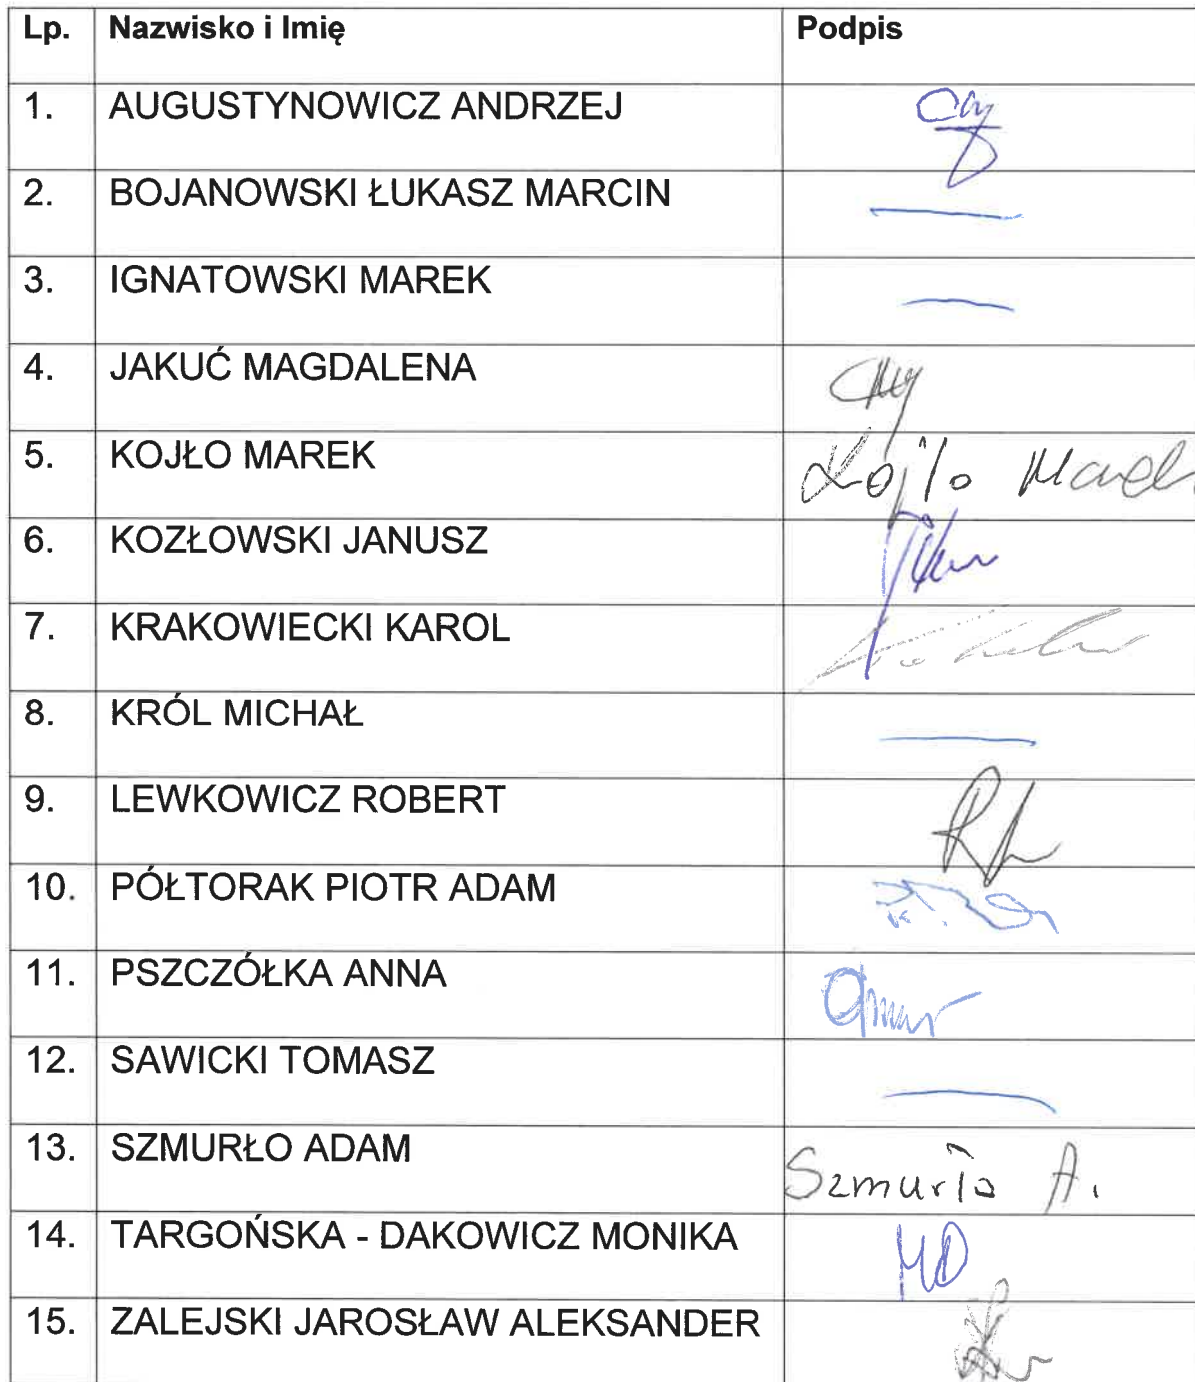 Lp. Nazwisko i Imię Podpis
1. AUGUSTYNOWICZ ANDRZEJ
2. BOJANOWSKI ŁUKASZ MARCIN
3. IGNATOWSKI MAREK
4. JAKUĆ MAGDALENA
5. KOJŁO MAREK Kojło Marek
6. KOZŁOWSKI JANUSZ
7. KRAKOWIECKI KAROL
8. KRÓL MICHAŁ
9. LEWKOWICZ ROBERT
10. PÓŁTORAK PIOTR ADAM
11. PSZCZÓŁKA ANNA
12. SAWICKI TOMASZ
13. SZMURŁO ADAM Szmurło A.
14. TARGOŃSKA - DAKOWICZ MONIKA MD
15. ZALEJSKI JAROSŁAW ALEKSANDER